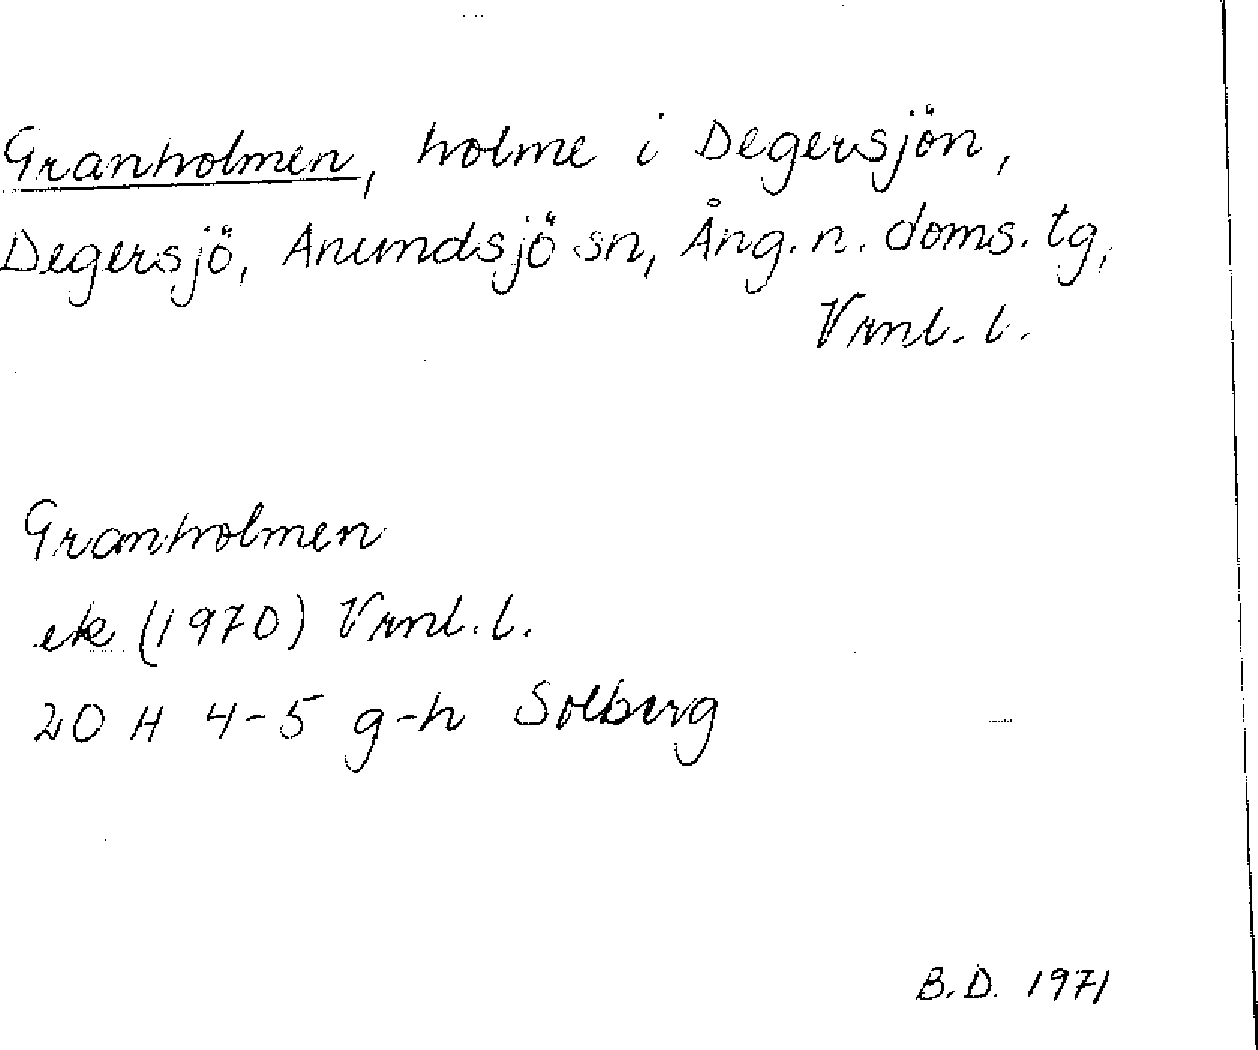 Granholmen, holme i Degersjön,
Degersjö, Anundsjö sn, Ång. n. doms. tg,
Vrnl. l.
Granholmen
ek (1970) Vrnl. l.
20 H 4-5 g-h Solberg
B.D. 1971